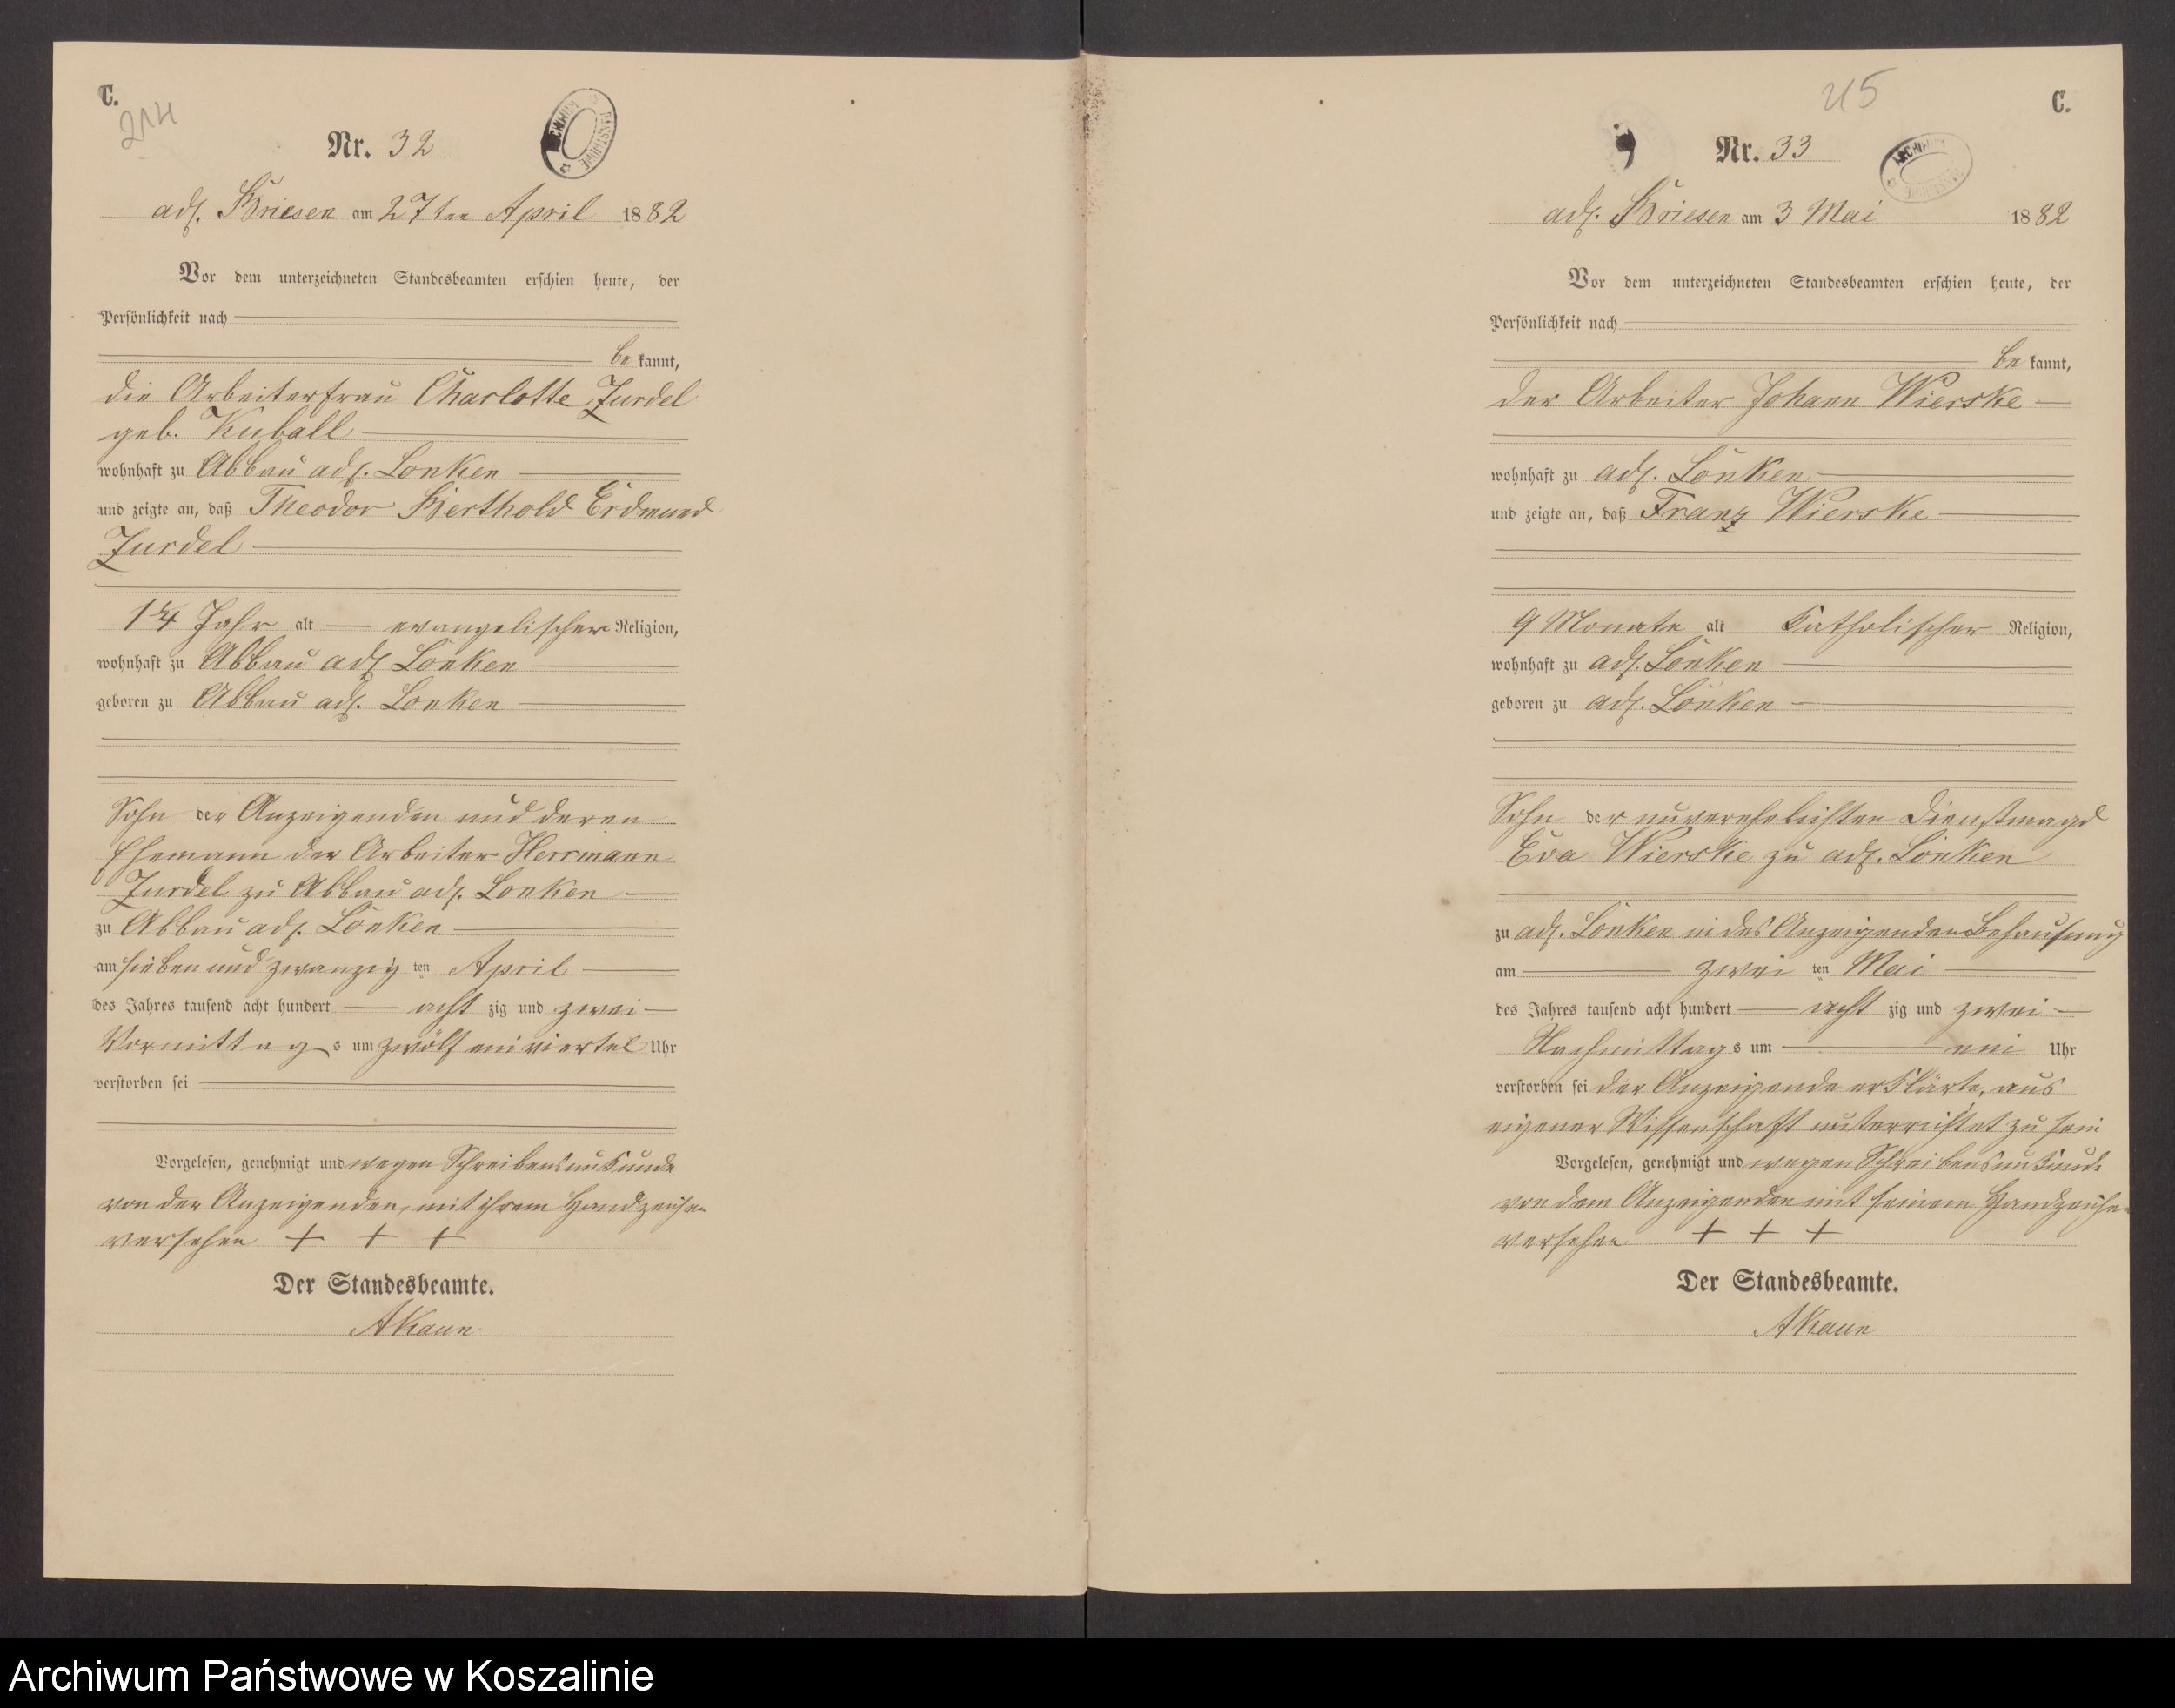 C.
214
Nr. 32
adl. Briesen am 27ten April 1882
Vor dem unterzeichneten Standesbeamten erschien heute, der
Persönlichkeit nach
be kannt,
die Arbeiterfrau Charlotte Zurdel
geb. Kuball
wohnhaft zu Abbau adl. Lonken
und zeigte an, daß Theodor Berthold Erdmand
Zurdel
1 1/4 Jahr alt evangelischer Religion,
wohnhaft zu Abbau adl Lonken
geboren zu Abbau adl. Lonken
Sohn der Anzeigenden und deren
Ehemann der Arbeiter Herrmann
Zurdel zu Abbau adl. Lonken
zu Abbau adl. Lonken
am sieben und zwanzig ten April
des Jahres tausend acht hundert acht zig und zwei
Vormittags um zwölf ein viertel Uhr
verstorben sei
Vorgelesen, genehmigt und wegen Schreibensunkunde
von der Anzeigenden, mit ihrem Handzeichen
versehen + + +
Der Standesbeamte.
AKaun
C.
215
Nr. 33
adl. Briesen am 3 Mai 1882
Vor dem unterzeichneten Standesbeamten erschien heute, der
Persönlichkeit nach
be kannt,
der Arbeiter Johann Wierske
wohnhaft zu adl. Lonken
und zeigte an, daß Franz Wierske
9 Monate alt Katholischer Religion,
wohnhaft zu adl. Lonken
geboren zu adl. Lonken
Sohn der unverehelichten Dienstmagd
Eva Wierske zu adl. Lonken
zu adl. Lonken in des Anzeigenden Behausung
am zwei ten Mai
des Jahres tausend acht hundert acht zig und zwei
Nachmittags um ein Uhr
verstorben sei der Anzeigende erklärte, aus
eigener Wissenschaft unterrichtet zu sein
Vorgelesen, genehmigt und wegen Schreibensunkunde
von dem Anzeigenden mit seinem Handzeichen
versehen + + +
Der Standesbeamte.
AKaun
Archiwum Państwowe w Koszalinie